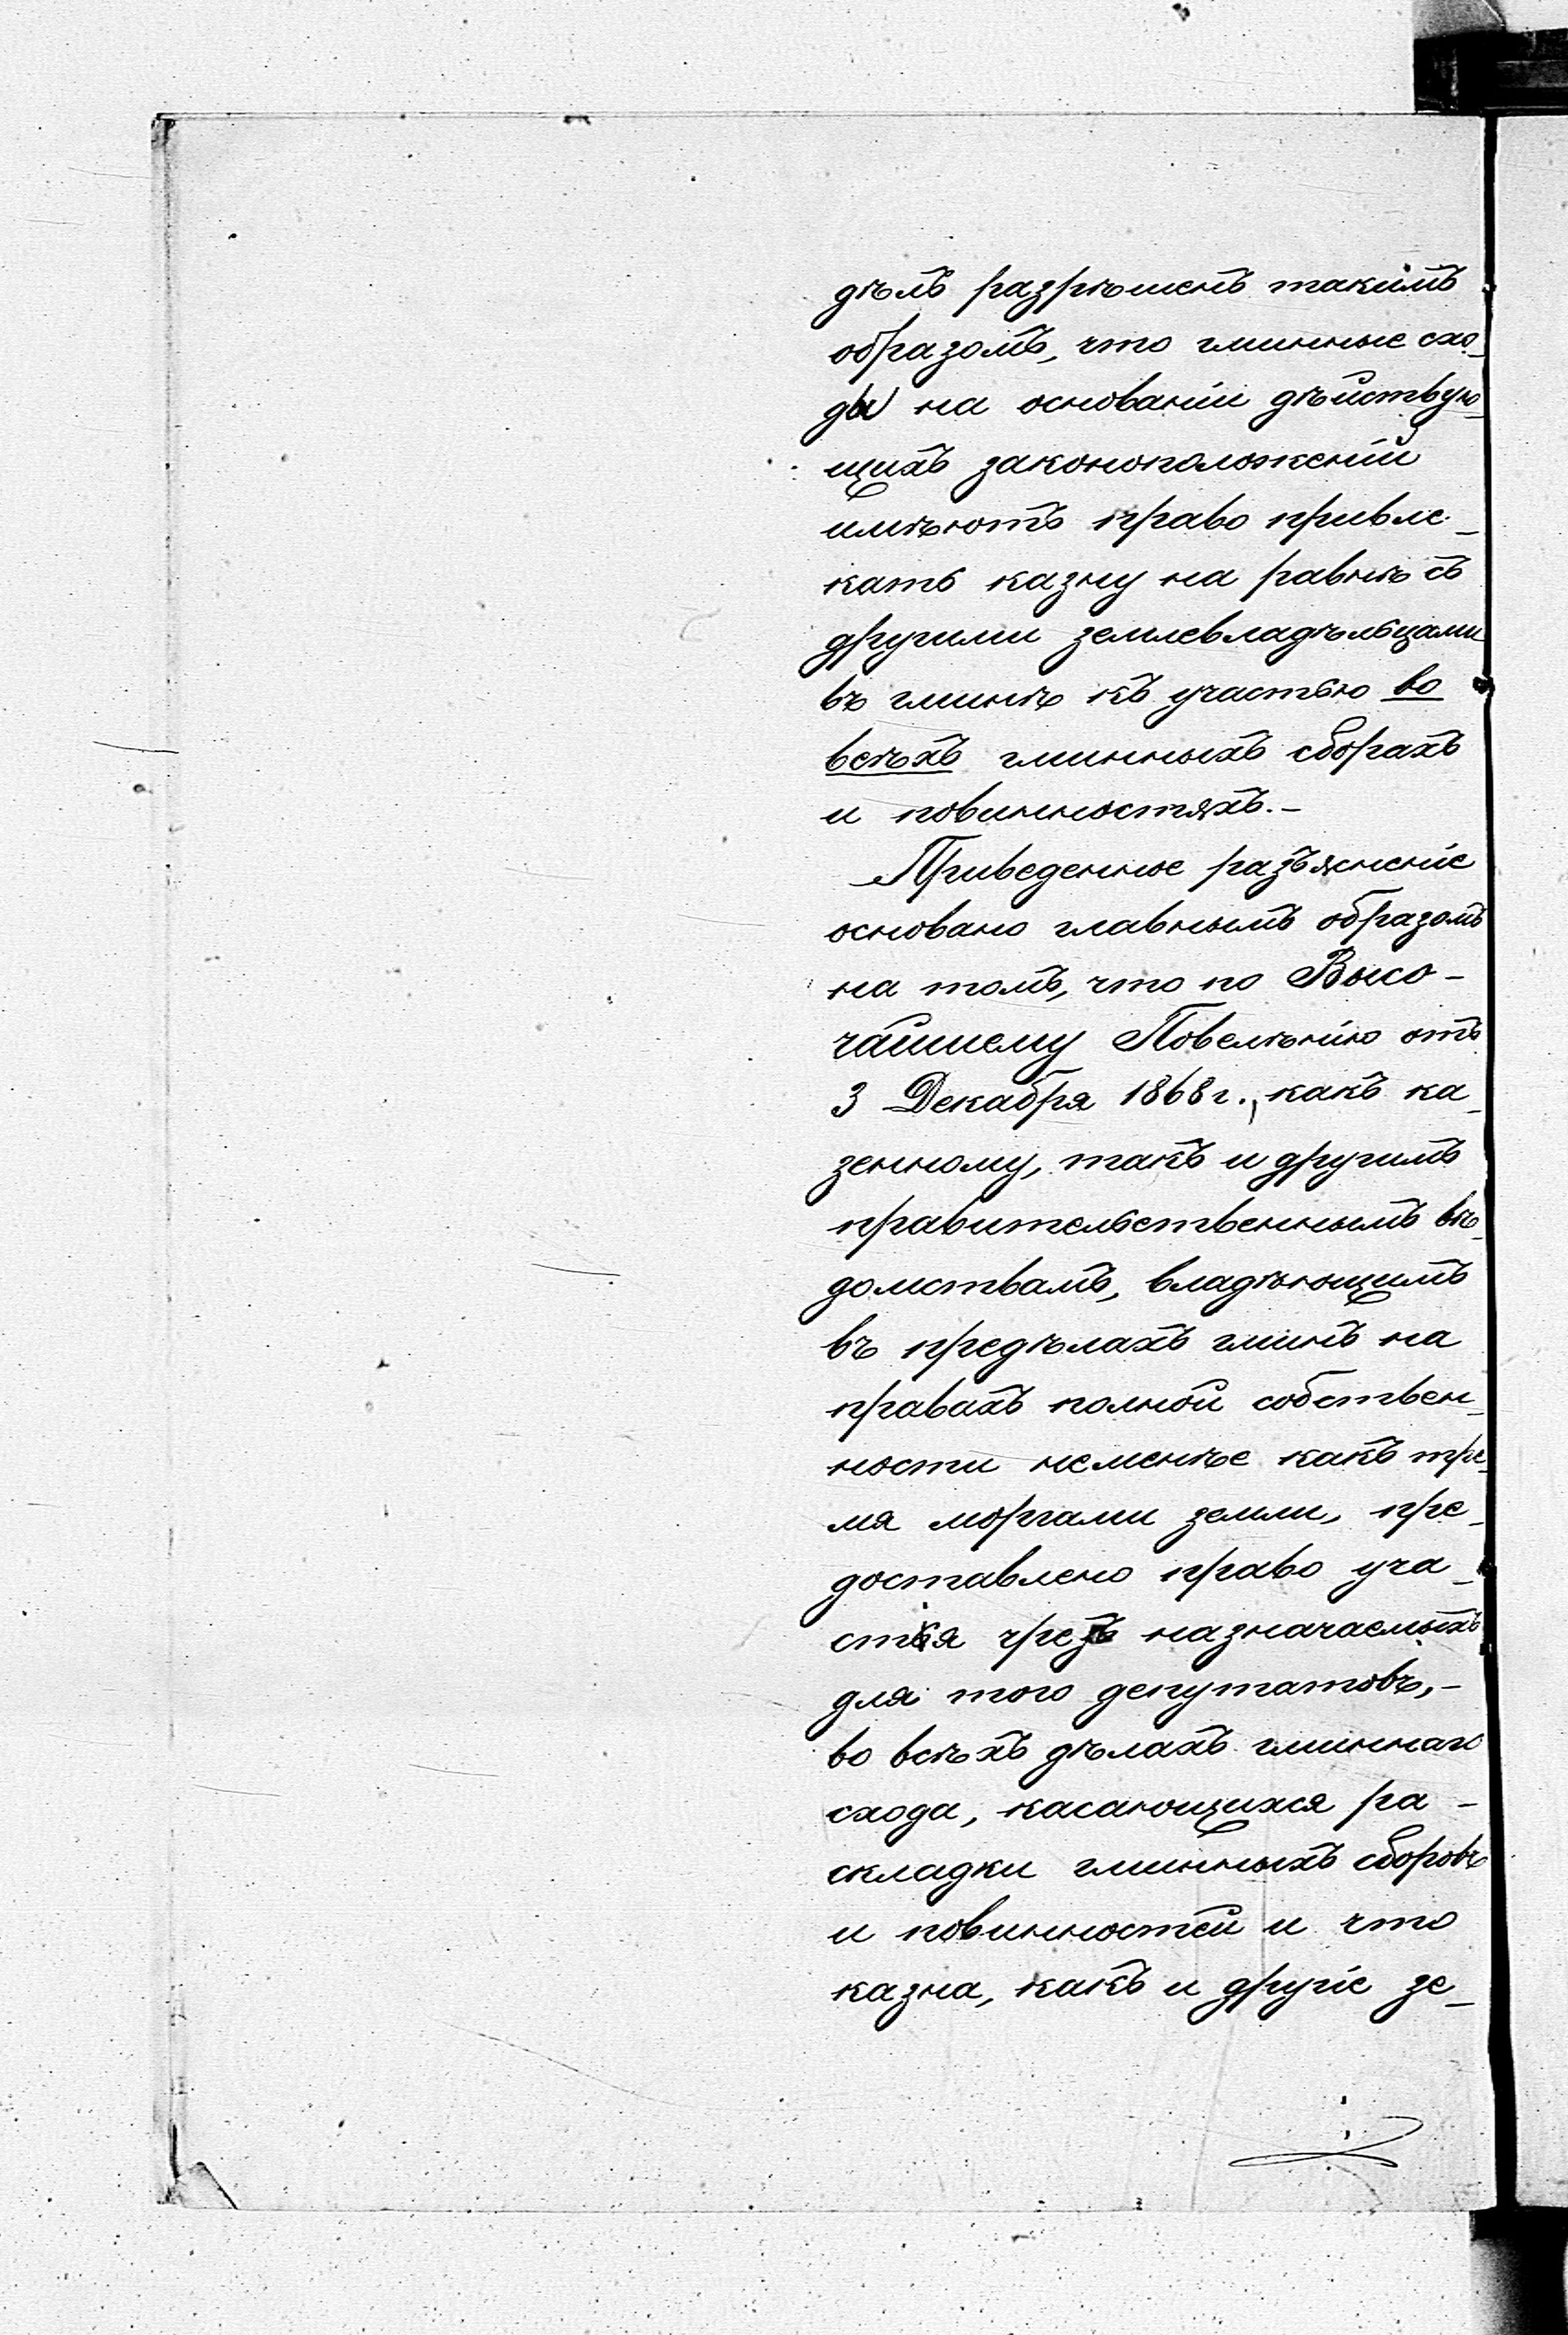 дѣлъ разрѣшенъ такимъ
образомъ, что гминные схо-
ды на основаніи дѣйствую-
щихъ законоположеній
имѣютъ право привле-
кать казну на равнѣ съ
другими землевладѣльцами
въ гминѣ къ участью во
всѣхъ гминныхъ сборахъ
и повинностяхъ.-
Приведенное разъясненіе
основано главнымъ образомъ
на томъ, что по Высо-
чайшему Повелѣнію отъ
3 Декабря 1868 г., какъ ка-
зенному, такъ и другимъ
правительственнымъ вѣ-
домствамъ, владѣющимъ
въ предѣлахъ гминъ на
правахъ полной собствен-
ности неменѣе какъ тре-
мя моргами земли, пре-
доставлено право уча-
стія чрезъ назначаемыхъ
для того депутатовъ,-
во всѣхъ дѣлахъ гминнаго
схода, касающихся ра-
складки гминныхъ сборовъ
и повинностей и что
казна, какъ и другіе зе-